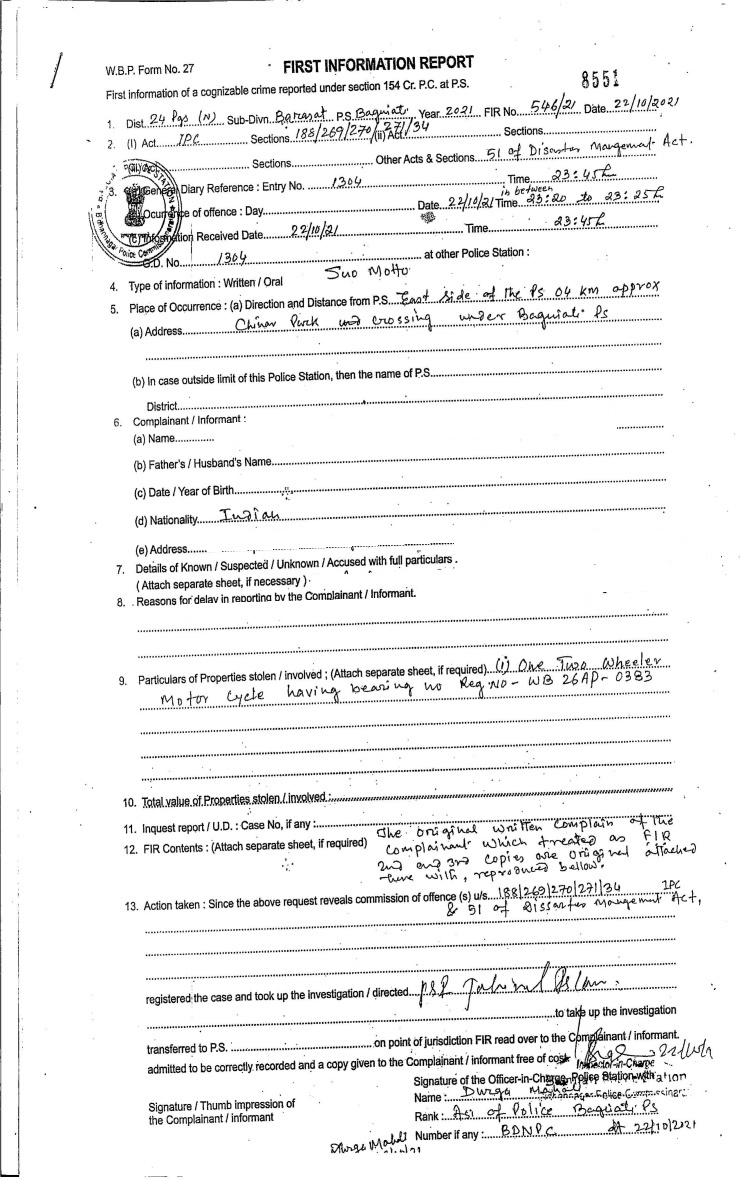 W.B.P. Form No. 27
FIRST INFORMATION REPORT
8551
First information of a cognizable crime reported under section 154 Cr. P.C. at P.S.
1. Dist. 24 Pgs (N) Sub-Divn. Barasat P.S. Baguiati Year 2021 FIR No. 546/21 Date 22/10/2021
2. (I) Act IPC Sections 188/269/270/271/34 (ii) Act Sections
Sections Other Acts & Sections 51 of Disaster Mangement Act.
3. General Diary Reference : Entry No. 1304 Time 23:45h
Occurrence of offence : Day Date 22/10/21 Time in between 23:20 to 23:25h
(c) Information Received Date 22/10/21 Time 23:45h
G.D. No. 1304 at other Police Station :
4. Type of information : Written / Oral Suo Motto
5. Place of Occurrence : (a) Direction and Distance from P.S. East side of the Ps 04 km approx
(a) Address Chinar Park crossing under Baguiati Ps
(b) In case outside limit of this Police Station, then the name of P.S.
District
6. Complainant / Informant :
(a) Name
(b) Father's / Husband's Name
(c) Date / Year of Birth
(d) Nationality Indian
(e) Address
7. Details of Known / Suspected / Unknown / Accused with full particulars .
( Attach separate sheet, if necessary )
8. Reasons for delay in reporting by the Complainant / Informant.
9. Particulars of Properties stolen / involved ; (Attach separate sheet, if required) (i) One Two Wheeler
Motor Cycle having bearing no Reg. No - WB 26AP- 0383
10. Total value of Properties stolen / involved :
11. Inquest report / U.D. : Case No, if any :
12. FIR Contents : (Attach separate sheet, if required) The original written complain of the
complainant which treated as FIR
2nd and 3rd copies are original attached
here with, reproduced bellow.
13. Action taken : Since the above request reveals commission of offence (s) u/s. 188/269/270/271/34 IPC
& 51 of Dissarter Mangement Act,
registered the case and took up the investigation / directed
to take up the investigation
transferred to P.S. on point of jurisdiction FIR read over to the Complainant / informant.
admitted to be correctly recorded and a copy given to the Complainant / informant free of cost
Inspector-in-Charge
Signature of the Officer-in-Charge, Police Station with
Name : Durga Mahali
Signature / Thumb impression of
the Complainant / informant
Rank : Asi of Police Baguiati Ps
Number if any : BDNPC dt 22/10/2021